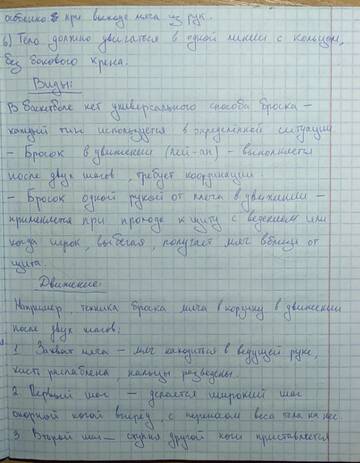 особенно при выходе мяча из рук.
6) Тело должно двигаться в одной линии с кольцом,
без бокового крена.
Виды:
В баскетболе нет универсального способа броска –
каждый тип используется в определённой ситуации
– Бросок в движении (лей-ап) – выполняется
после двух шагов, требует координации
– Бросок одной рукой от плеча в движении –
применяется при проходе к щиту с ведением или
когда игрок, выбегая, получает мяч вблизи от
щита.
Движение:
Например, техника броска мяча в корзину в движении
после двух шагов:
1. Захват мяча – мяч находится в ведущей руке,
кисть расслаблена, пальцы разведены.
2. Первый шаг – делается широкий шаг
опорной ногой вперёд, с переносом веса тела на нее
3. Второй шаг – ступня другой ноги приставляется